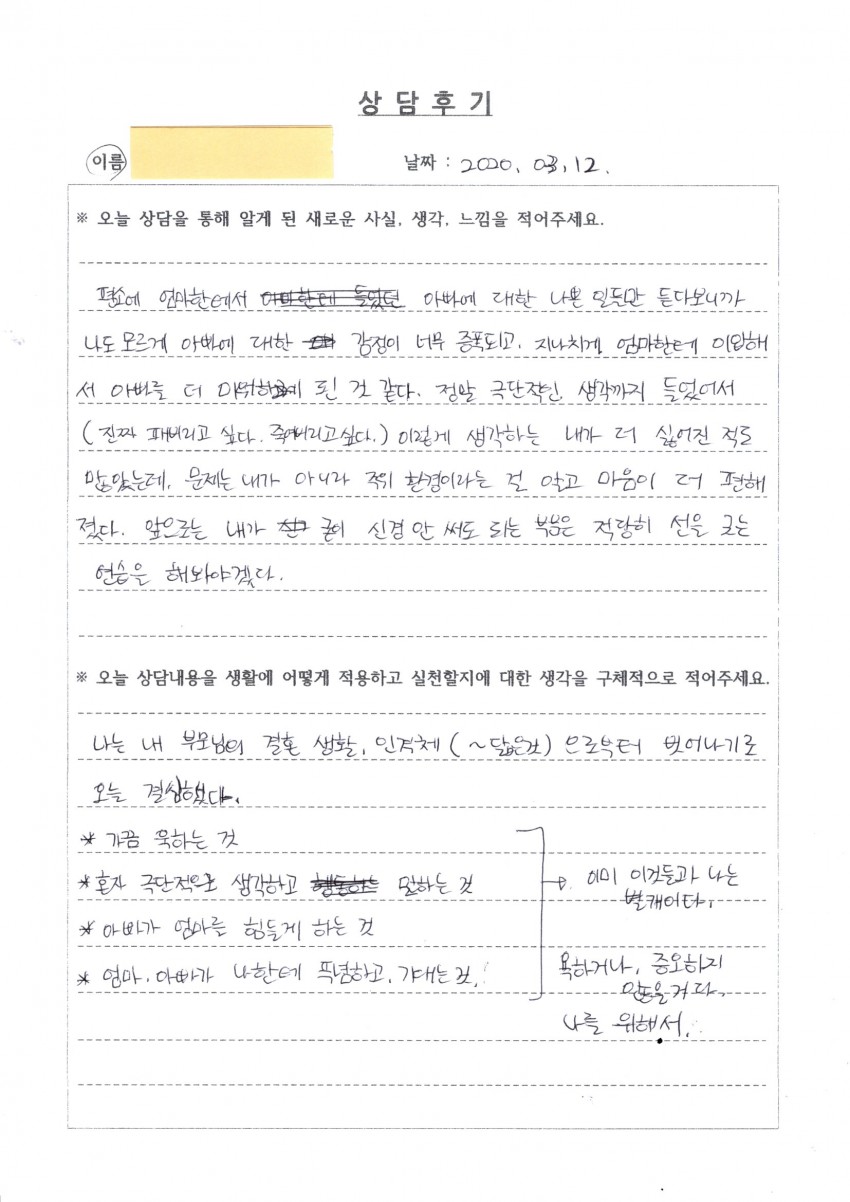 상 담 후 기
이름
날짜 : 2020. 03. 12.
※ 오늘 상담을 통해 알게 된 새로운 사실, 생각, 느낌을 적어주세요.
평소에 엄마한테서 아빠한테 들었던 아빠에 대한 나쁜 일들만 듣다보니까
나도 모르게 아빠에 대한 감정이 너무 증폭되고, 지나치게 엄마한테 이입해
서 아빠를 더 미워하게 된 것 같다. 정말 극단적인 생각까지 들었어서
(진짜 패버리고 싶다. 죽여버리고싶다.) 이렇게 생각하는 내가 더 싫어진 적도
많았는데, 문제는 내가 아니라 주위 환경이라는 걸 알고 마음이 더 편해
졌다. 앞으로는 내가 굳이 신경 안 써도 되는 부분은 적당히 선을 긋는
연습을 해봐야겠다.
※ 오늘 상담내용을 생활에 어떻게 적용하고 실천할지에 대한 생각을 구체적으로 적어주세요.
나는 내 부모님의 결혼 생활, 인격체 (~닮은것) 으로부터 벗어나기로
오늘 결심했다.
* 가끔 욱하는 것
* 혼자 극단적으로 생각하고 행동하는 말하는 것
* 아빠가 엄마를 힘들게 하는 것
* 엄마, 아빠가 나한테 푸념하고, 기대는 것.
→ 이미 이것들과 나는
별개이다.
욕하거나, 증오하지
않을거다.
나를 위해서.